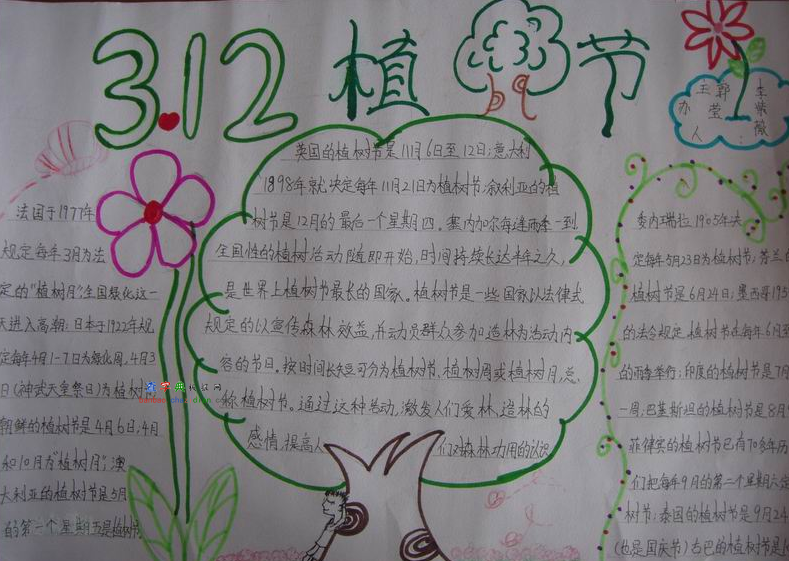 3.12 植树节
主办人
郭莹
李紫薇
法国于1977年
规定每年3月为法
定的"植树月";全国绿化这一
天进入高潮;日本于1922年规
定每年4月1-7日为绿化周,4月3
日(神武天皇祭日)为植树节
朝鲜的植树节是4月6日,4月
和10月为"植树月";澳
大利亚的植树节是5月
的第一个星期五是植树节
英国的植树节是11月6日至12日;意大利
1898年就决定每年11月21日为植树节;叙利亚的植
树节是12月的最后一个星期四。塞内加尔每逢雨季一到
全国性的植树活动随即开始,时间持续长达半年之久,
是世界上植树节最长的国家。植树节是一些国家以法律式
规定的以宣传森林效益,并动员群众参加造林为活动内
容的节日。按时间长短可分为植树节、植树周或植树月,总
称植树节。通过这种活动,激发人们爱林、造林的
感情,提高人们对森林功用的认识
委内瑞拉1905年决
定每年5月23日为植树节;芬兰的
植树节是6月24日;墨西哥195
的法令规定,植树节在每年6月至
的雨季举行;印度的植树节是7月
一周;巴基斯坦的植树节是8月9
菲律宾的植树节已有70多年历
们把每年9月的第二个星期六定
树节;泰国的植树节是9月24
(也是国庆节)古巴的植树节是10